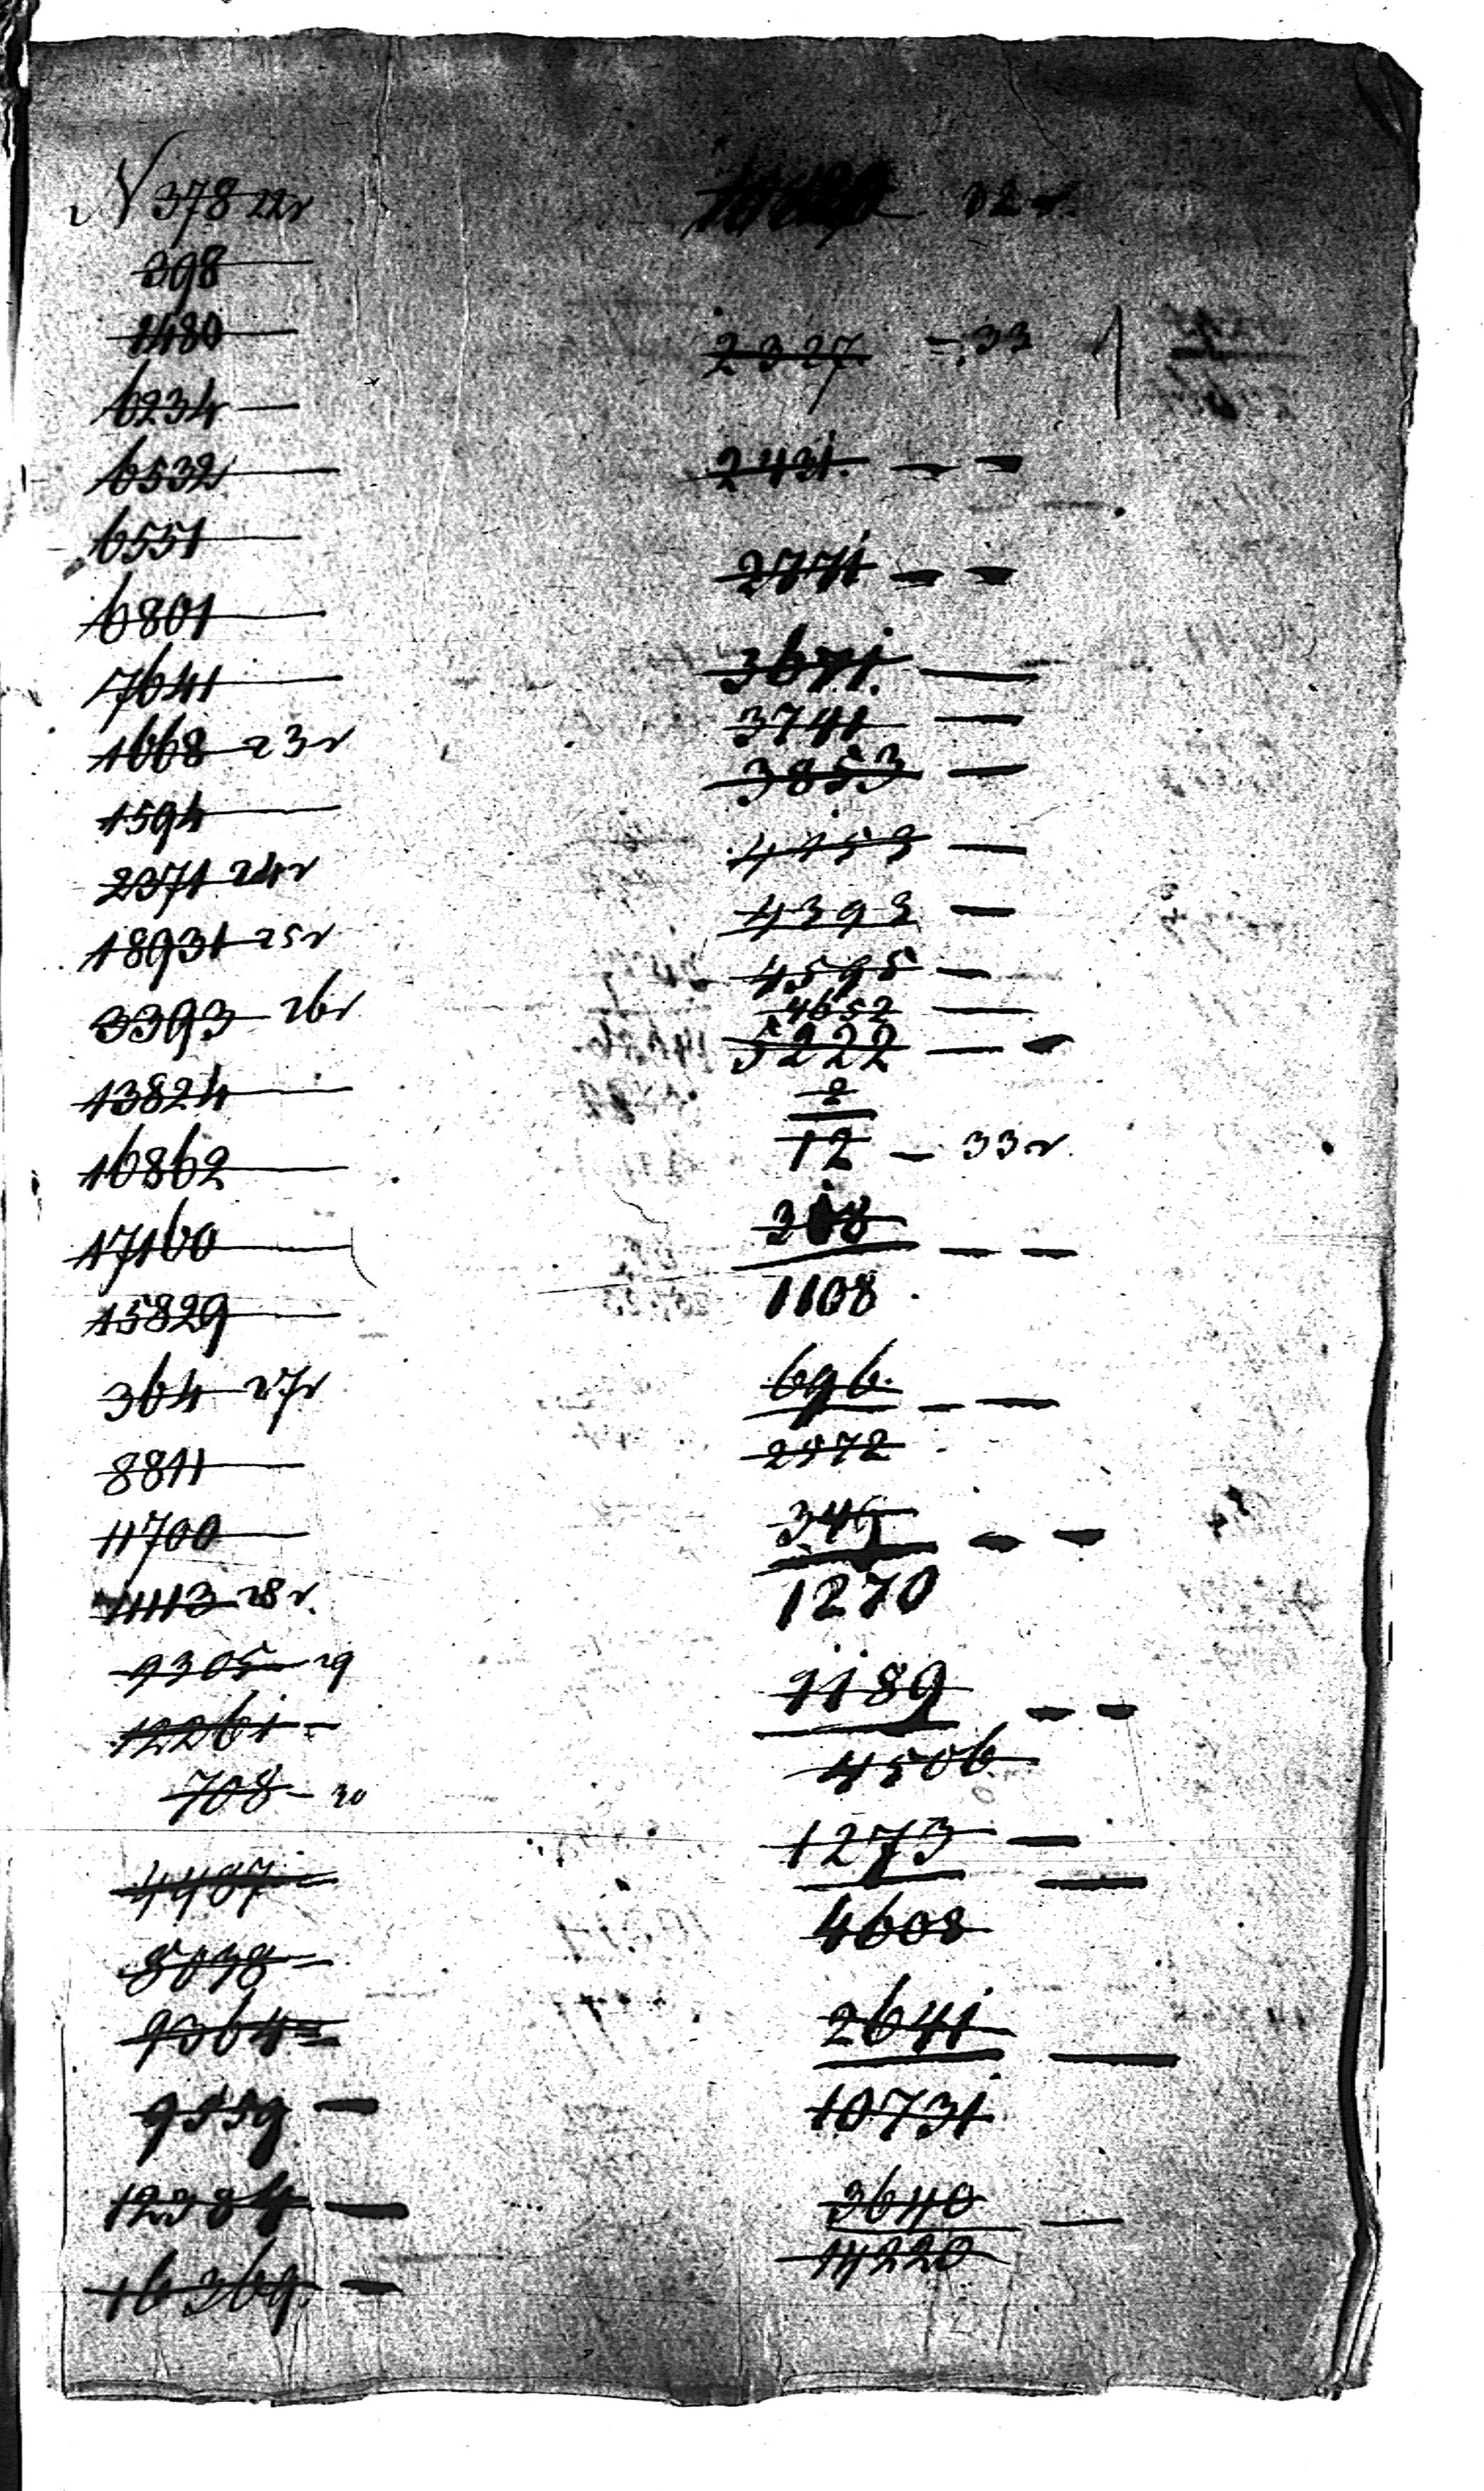 N 378 22 г
398
2480
6234
6532
6551
6801
7641
1668 23 г
1594
2371 24 г
18931 25 г
3393 26 г
13824
16862
17160
15829
364 27 г
8811
11700
11113 28 г.
9305 29
12261
708 30
4487
8038
9364
9559
12384
16369
32 г.
2327 - 33
2431
2771
3671
3741
3853
4153
4393
4595
4652
5222
2
12 - 33 г.
318
1108
696
2572
349
1270
1189
4506
1273
4608
2641
10731
3640
14220